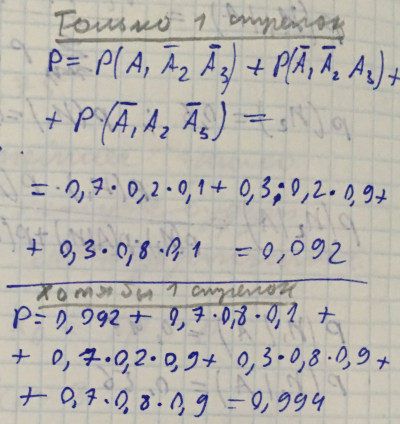 Только 1 стрелок
P = P(A₁ Ā₂ Ā₃) + P(Ā₁ Ā₂ A₃) +
+ P(Ā₁ A₂ Ā₃) =
= 0,7·0,2·0,1 + 0,3·0,2·0,9 +
+ 0,3·0,8·0,1 = 0,092
хотя бы 1 стрелок
P = 0,092 + 0,7·0,8·0,1 +
+ 0,7·0,2·0,9 + 0,3·0,8·0,9 +
+ 0,7·0,8·0,9 = 0,994